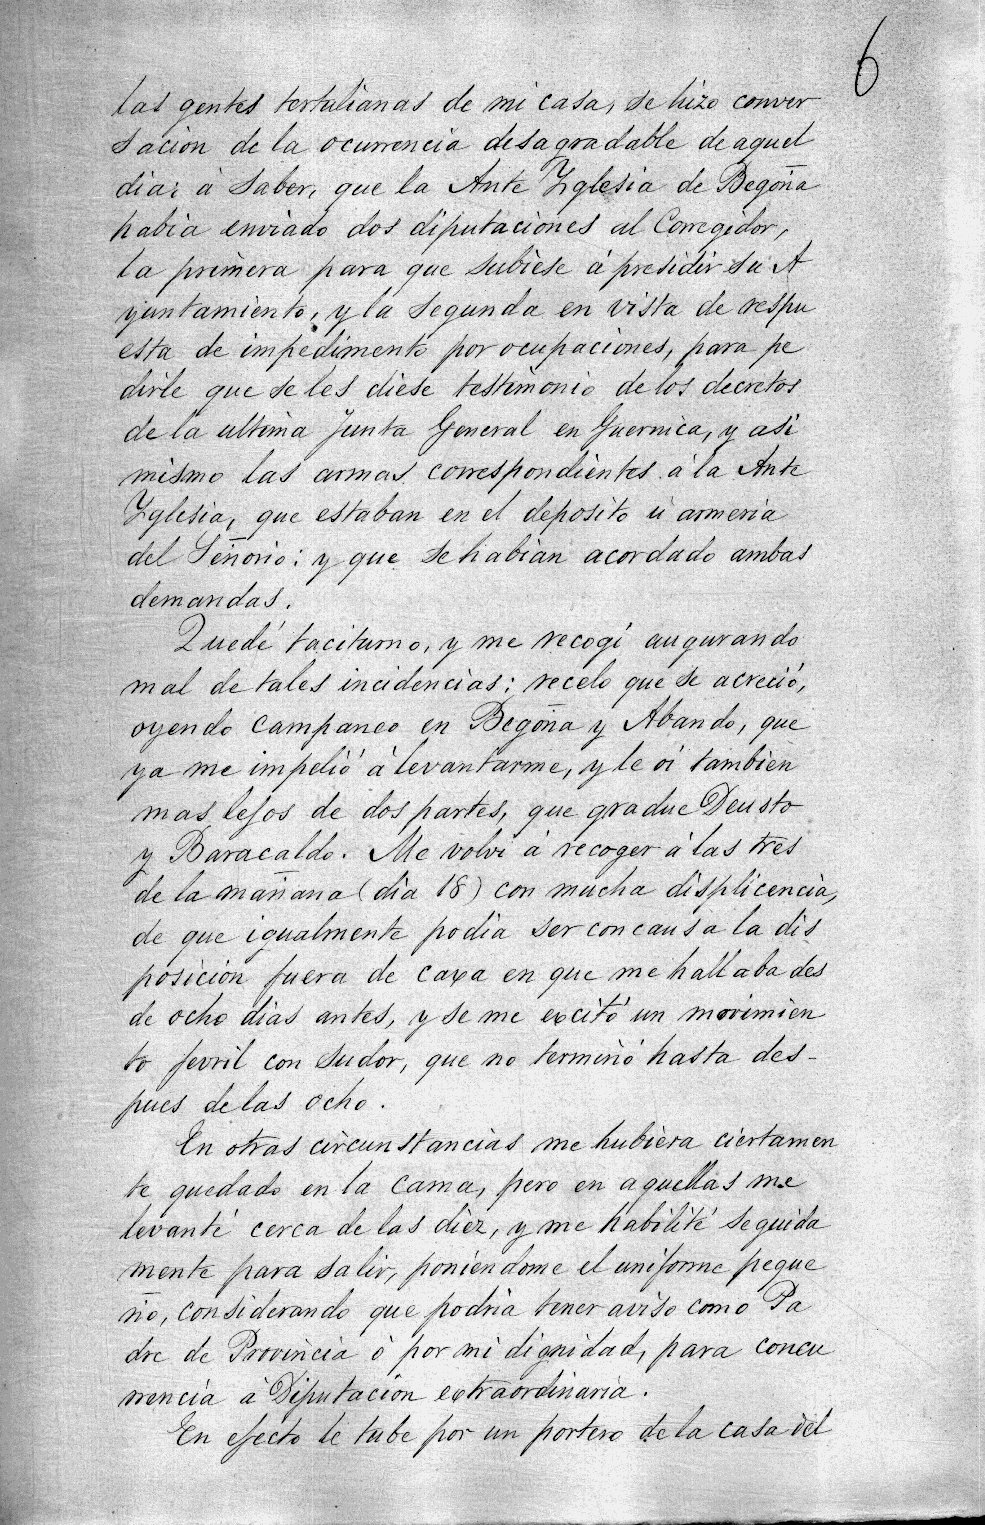 6
las gentes tertulianas de mi casa, se hizo conver
sacion de la ocurrencia desagradable de aquel
dia: á saber, que la Ante Yglesia de Begoña
habia enviado dos diputaciones al Corregidor,
la primera para que subiese á presidir su A
yuntamiento, y la segunda en vista de respu
esta de impedimento por ocupaciones, para pe
dirle que se les diese testimonio de los decretos
de la ultima Junta General en Guernica, y asi
mismo las armas correspondientes á la Ante
Yglesia, que estaban en el deposito ú armeria
del Señorio: y que se habian acordado ambas
demandas.
Quedé taciturno, y me recogí augurando
mal de tales incidencias; recelo que se acreció,
oyendo campaneo en Begoña y Abando, que
ya me impelió á levantarme, y le oí tambien
mas lejos de dos partes, que gradue Deusto
y Baracaldo. Me volvi á recoger á las tres
de la mañana (dia 18) con mucha displicencia,
de que igualmente podia ser concausa la dis
posicion fuera de caxa en que me hallaba des
de ocho dias antes, y se me excitó un movimien
to fevril con sudor, que no terminó hasta des-
pues de las ocho.
En otras circunstancias me hubiera ciertamen
te quedado en la cama, pero en aquellas me
levanté cerca de las diez, y me habilité seguida
mente para salir, poniendome el uniforme peque
ño, considerando que podria tener aviso como Pa
dre de Provincia ó por mi dignidad, para concu
rrencia á Diputacion extraordinaria.
En efecto le tube por un portero de la casa del